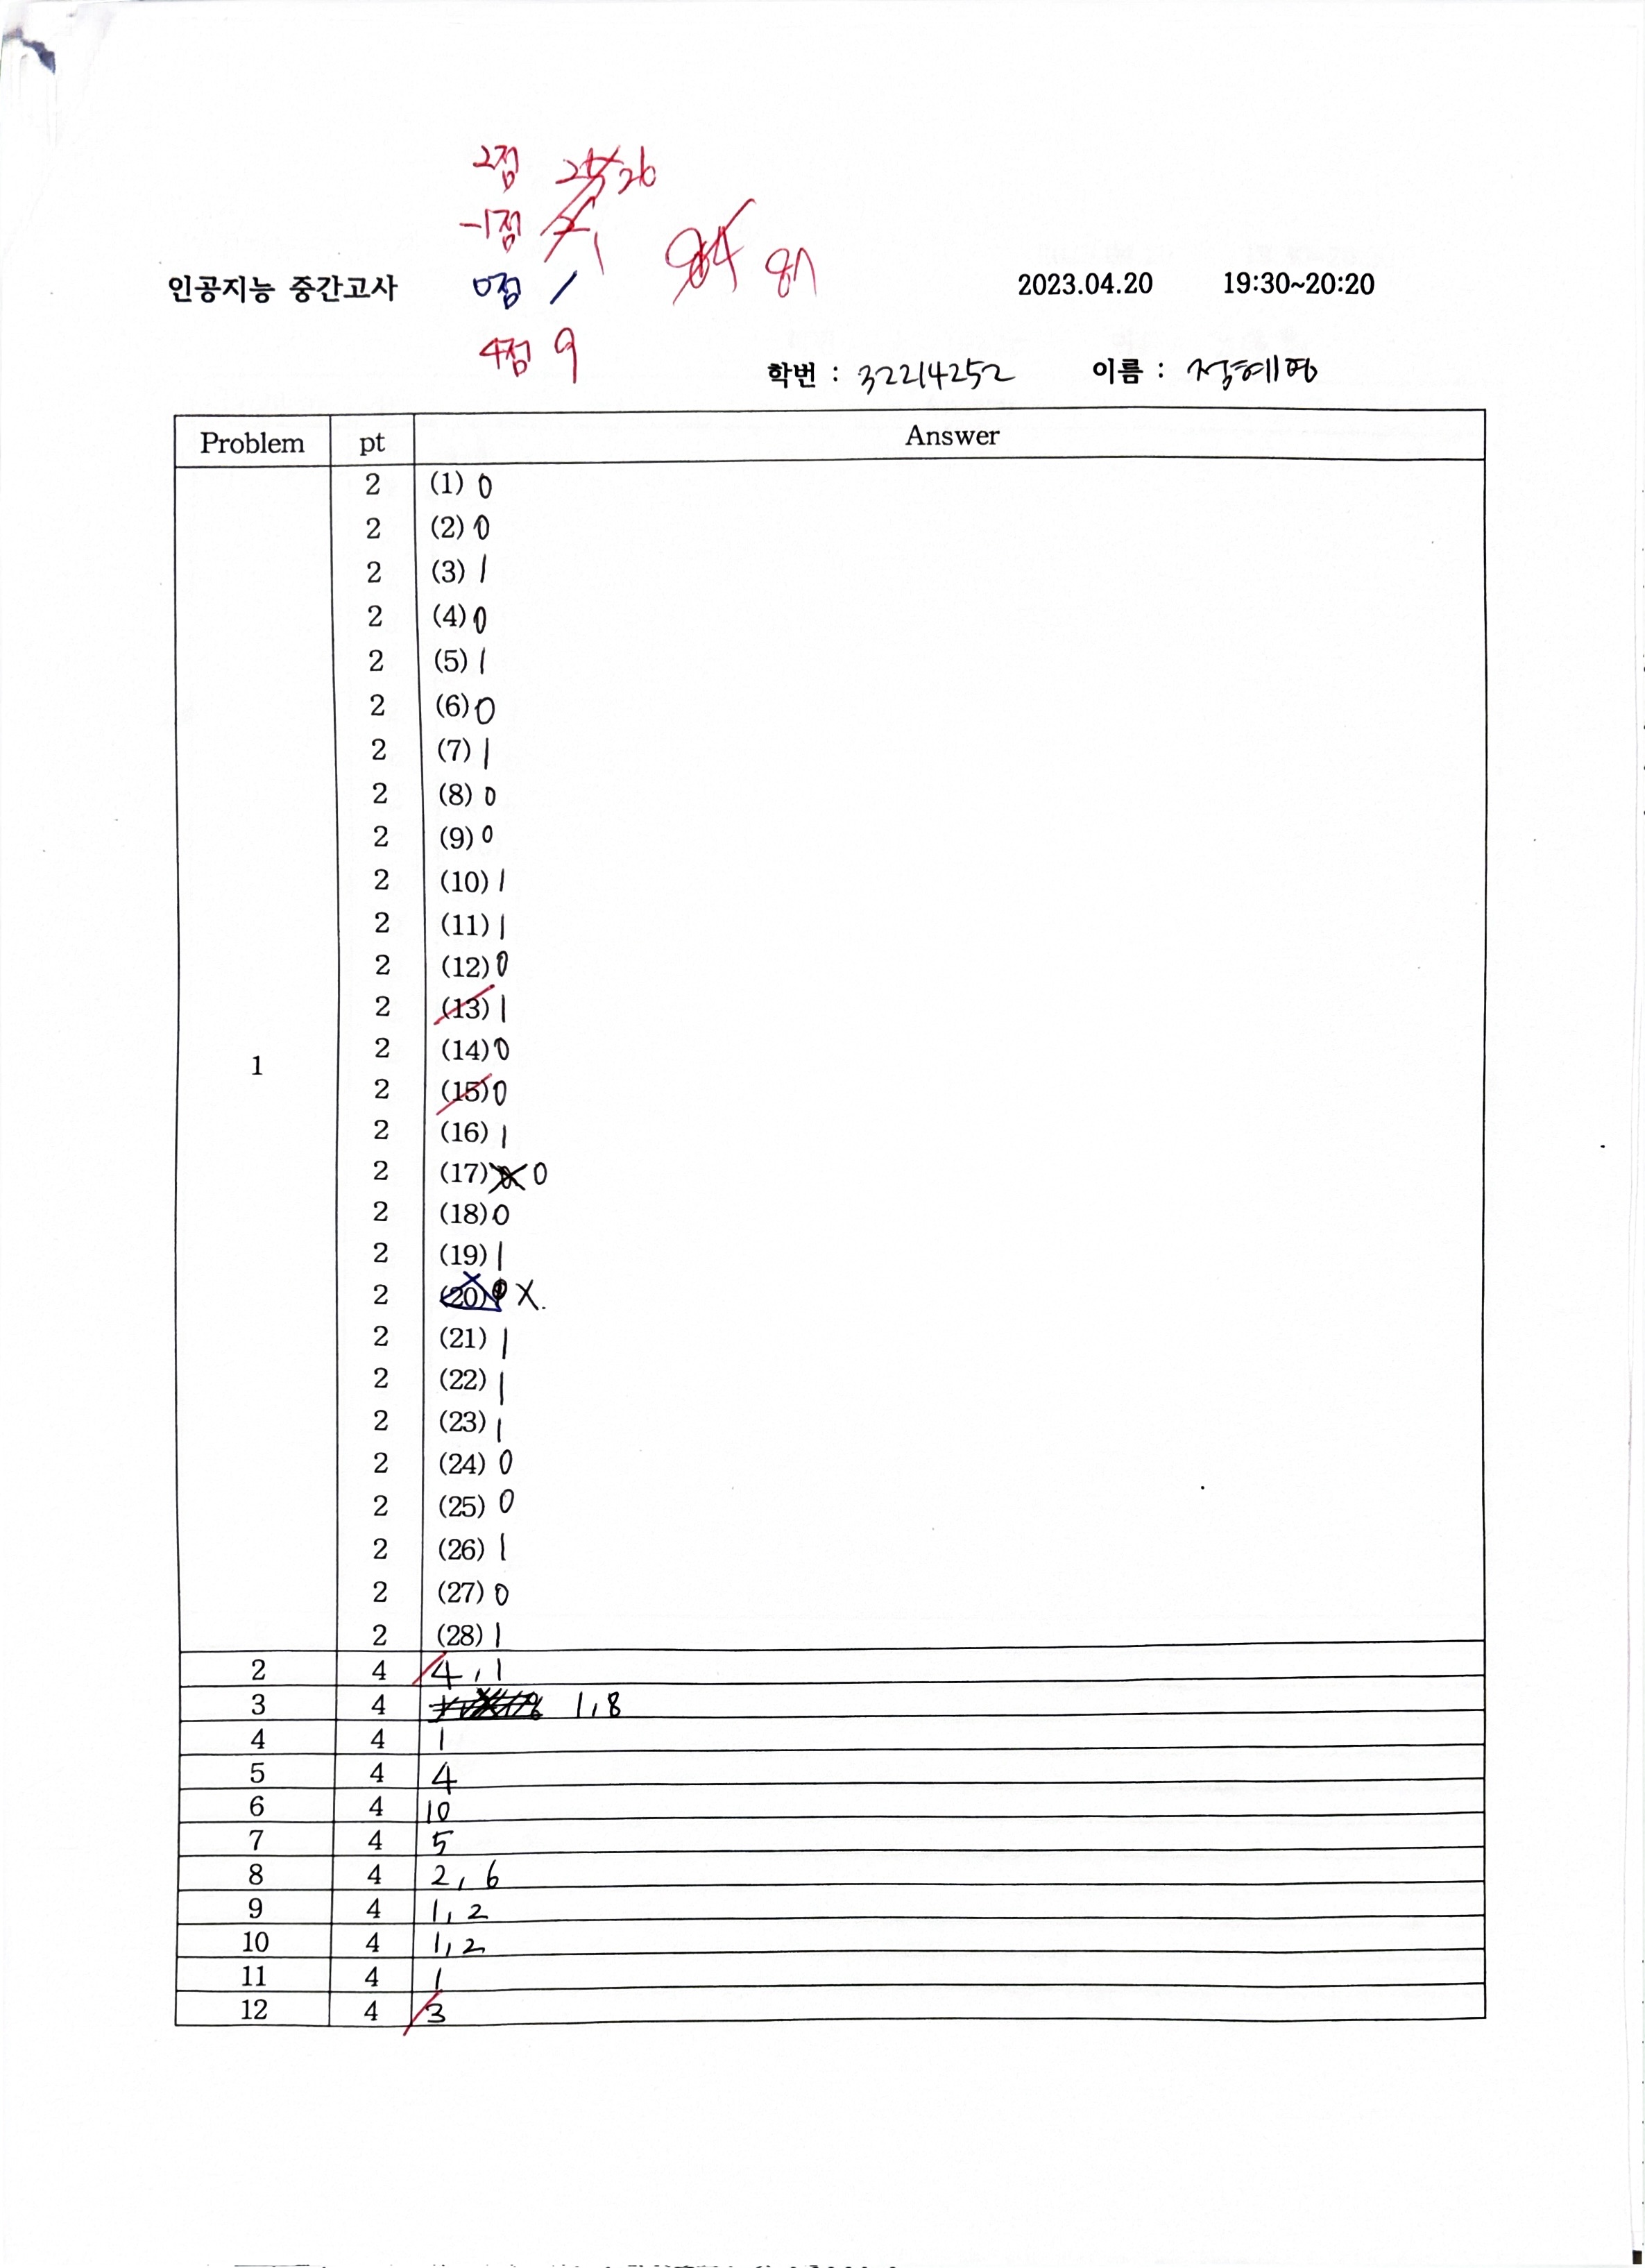 2점 26
-1점 1
인공지능 중간고사 0점 / 87 2023.04.20 19:30~20:20
4점 9
학번 : 32214252 이름 :
Problem pt Answer
2 (1) 0
2 (2) 0
2 (3) 1
2 (4) 0
2 (5) 1
2 (6) 0
2 (7) 1
2 (8) 0
2 (9) 0
2 (10) 1
2 (11) 1
2 (12) 0
2 (13) 1
1 2 (14) 0
2 (15) 0
2 (16) 1
2 (17) 0
2 (18) 0
2 (19) 1
2 (20) X.
2 (21) 1
2 (22) 1
2 (23) 1
2 (24) 0
2 (25) 0
2 (26) 1
2 (27) 0
2 (28) 1
2 4 4, 1
3 4 1, 8
4 4 1
5 4 4
6 4 10
7 4 5
8 4 2, 6
9 4 1, 2
10 4 1, 2
11 4 1
12 4 3